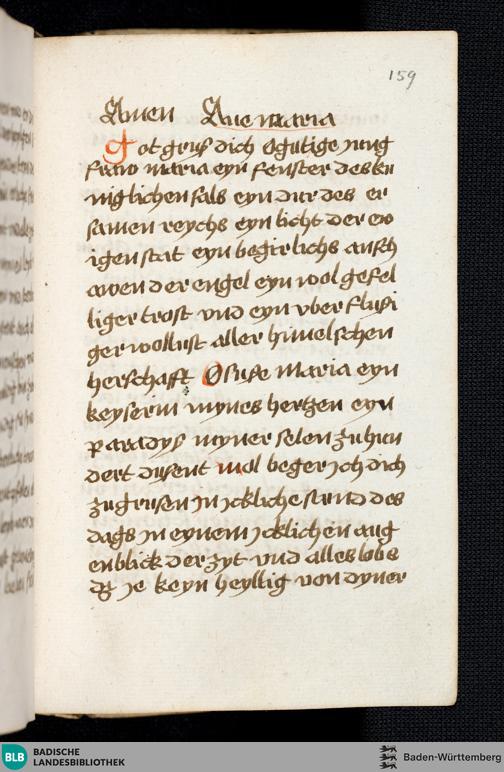 159
Amen Aue maria
Got gruß dich O gutige jung
fraw maria eyn fenster des ku
niglichen sals eyn dur des er
samen reychs eyn licht der ew
igen stat eyn begirlichs ansch
awen der engel eyn wol gefel
liger trost vnd eyn vber flusi
ger wollust aller himelschen
herschafft O suse maria eyn
keyserin mynes hertzen eyn
paradyß myner selen zu hun
dert dusent mol beger jch dich
zu grusen jn jckliche stund des
dags jn eynem jcklichen aug
enblick der zyt vnd alles lobs
dz je keyn heyllig von dyner
BLB BADISCHE
LANDESBIBLIOTHEK
Baden-Württemberg